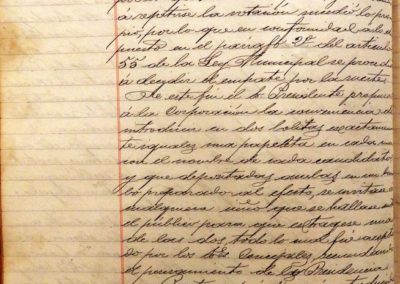 á repetirse la votación sucedió lo pro
pio, por lo que en conformidad a lo dis
puesto en el párrafo 2º del artículo
55 de la Ley Municipal se procedió
á decidir el empate por la suerte
A este fin el Sr. Presidente propuso
á la Corporación la conveniencia de
introducir en dos bolitas exactamen
te iguales una papeleta en cada una
con el nombre de cada candidato
y que depositadas ambas en un bom
bo preparado al efecto, se invitase á
cualquiera niño que se hallase en
el público para que extragese una
de las dos todo lo cual fué acepta
do por los Sres. Concejales
el pensamiento de la Presidencia